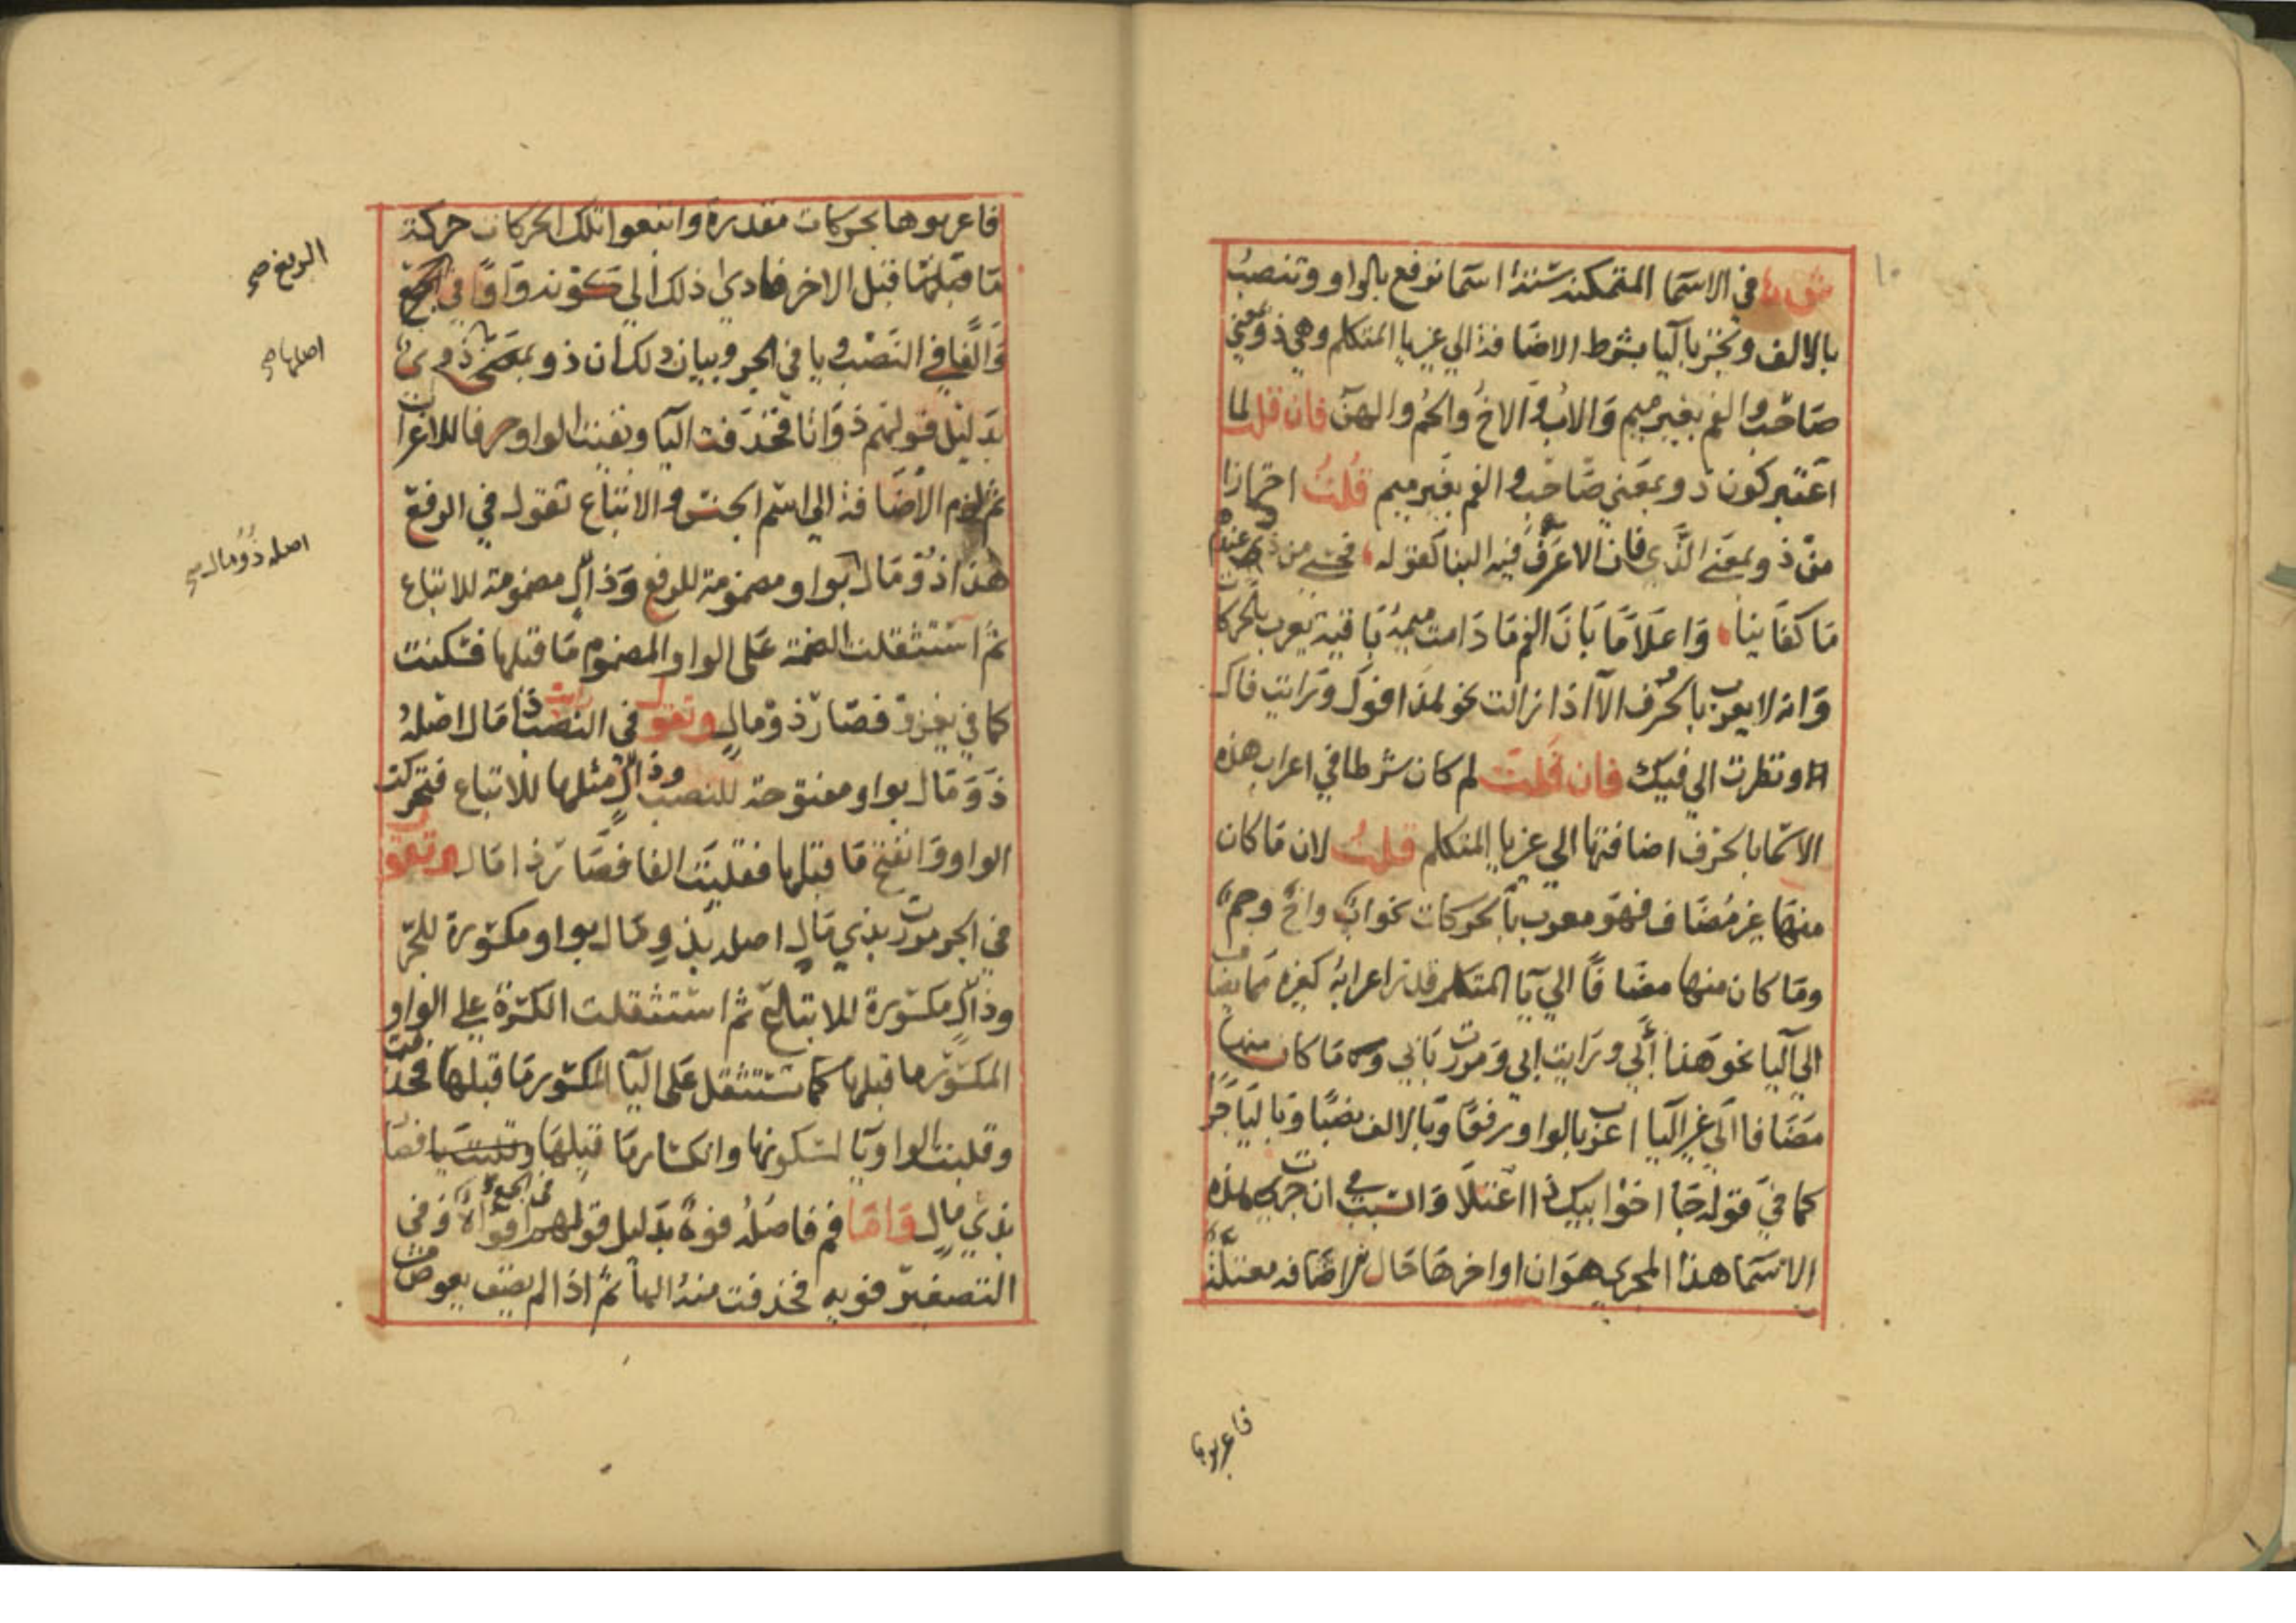 ١٠
في الاسما المتمكنه ستة اسما ترفع بالواو وتنصب
بالالف وتجر باليا بشرط الاضافة الي غير يا المتكلم وهي ذو بمعني
صاحب والفم بغير ميم والاب والاخ والحم والهن فان قلت لما
اعتبر كون ذو بمعني صاحب والفم بغير ميم قلت احترازا
من ذو بمعني الذي فان الاعرف فيه البنا كقوله فحسبي من ذي عندهم
ما كفانيا واعلاما بان الفم ما دامت ميمه باقية يعرب بالحركات
وانه لا يعرب بالحرف الا اذا زالت نحو هذا فوك ورايت فاك
ونظرت الي فيك فان قلت لم كان شرطا في اعراب هذه
الاسما بالحرف اضافتها الي غير يا المتكلم قلت لان ما كان
منها غير مضاف فهو معرب بالحركات نحو اب واخ وحم
وما كان منها مضافا الي يا المتكلم قدر اعرابه كغيره مما يضاف
الي اليا نحو هذا ابي ورايت ابي ومررت بابي وما كان منها
مضافا الي غير اليا اعرب بالواو رفعا وبالالف نصبا وباليا جرا
كما في قوله جا اخو ابيك ذا اعتلا والسبب في ان جرت هذه
الاسما هذا المجري هو ان اواخرها حال الاضافه معتلة
فاعربوها
فاعربوها بحركات مقدرة واتبعوا تلك الحركات حركة
ما قبل الاخر فادي ذلك الي كونه واوا في الرفع
والفا في النصب ويا في الجر وبيان ذلك ان ذو
بدليل قولهم ذواتا فحذفت اليا وبقيت الواو حرفا للاعراب
ثم لزم الاضافة الي اسم الجنس والاتباع تقول في الرفع
هذا ذو مال بواو مضمومة للرفع وذال مضمومة للاتباع
ثم استثقلت الضمة علي الواو المضموم ما قبلها فسكنت
كما في يغزو فصار ذو مال وتقول في النصب رايت ذا مال اصله
ذوو مال بواو مفتوحة للنصب وذال مثلها للاتباع فتحركت
الواو وانفتح ما قبلها فقلبت الفا فصار ذا مال وتقول
في الجر مررت بذي مال اصله بذو مال بواو مكسورة للجر
وذال مكسورة للاتباع ثم استثقلت الكسرة علي الواو
المكسور ما قبلها كما تستثقل علي اليا المكسور ما قبلها فحذفت
وقلبت الواو يا لسكونها وانكسار ما قبلها وقلبت يا فصار
بذي مال واما فم فاصله فوه بدليل قولهم في الجمع افواه وفي
التصغير فويه فحذفت منه الها ثم اذا لم يضف يعوض
الرفع صح
اصلها صح
اصله ذوو مال صح